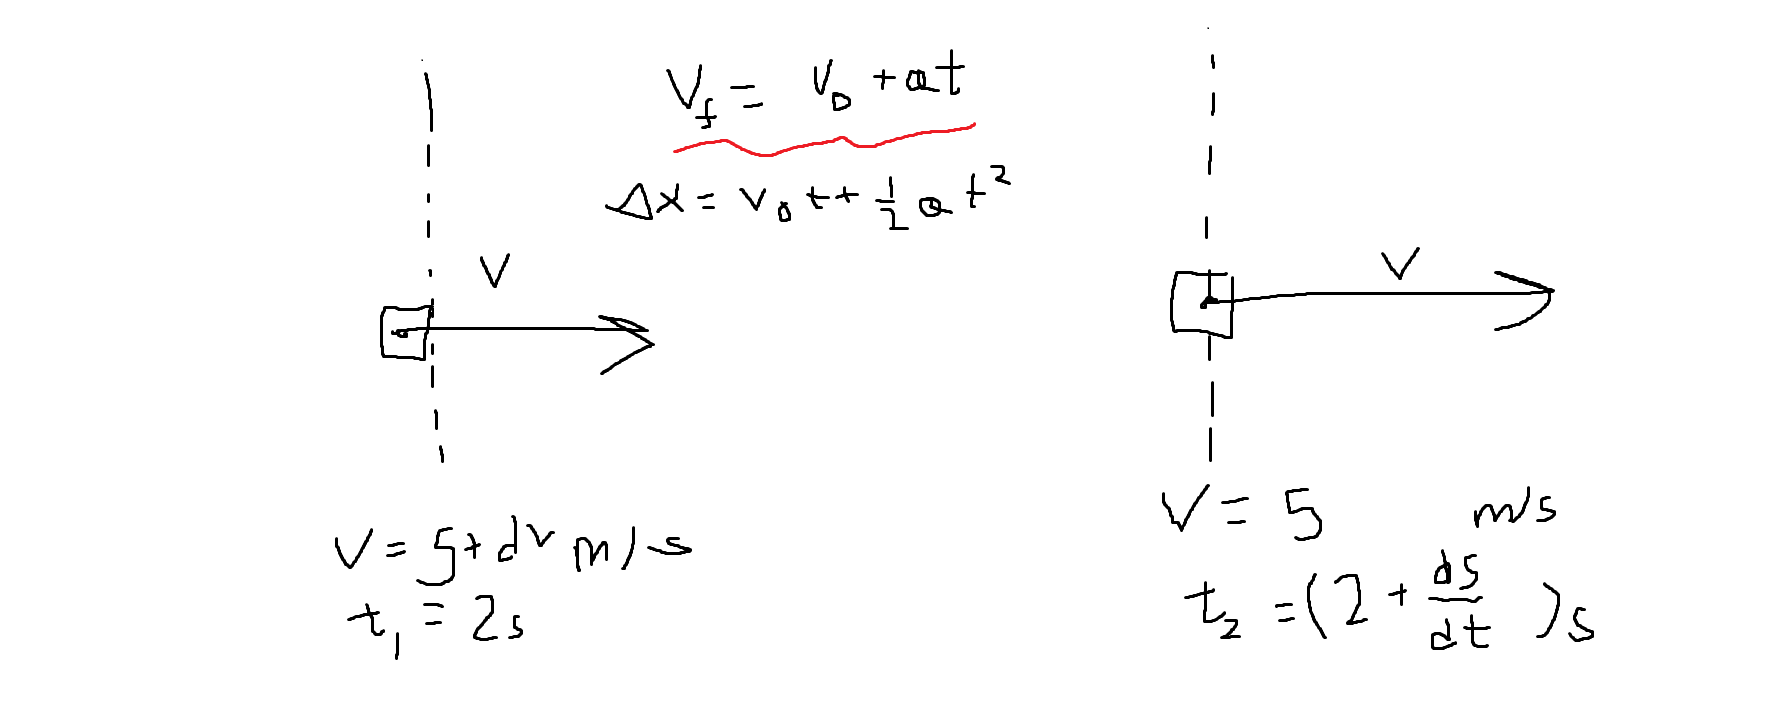 V_f = V_0 + at
Δx = v_0 t + 1/2 a t^2
V
V
V = 5 + dv m/s
t_1 = 2s
V = 5 m/s
t_2 = (2 + ds/dt)s